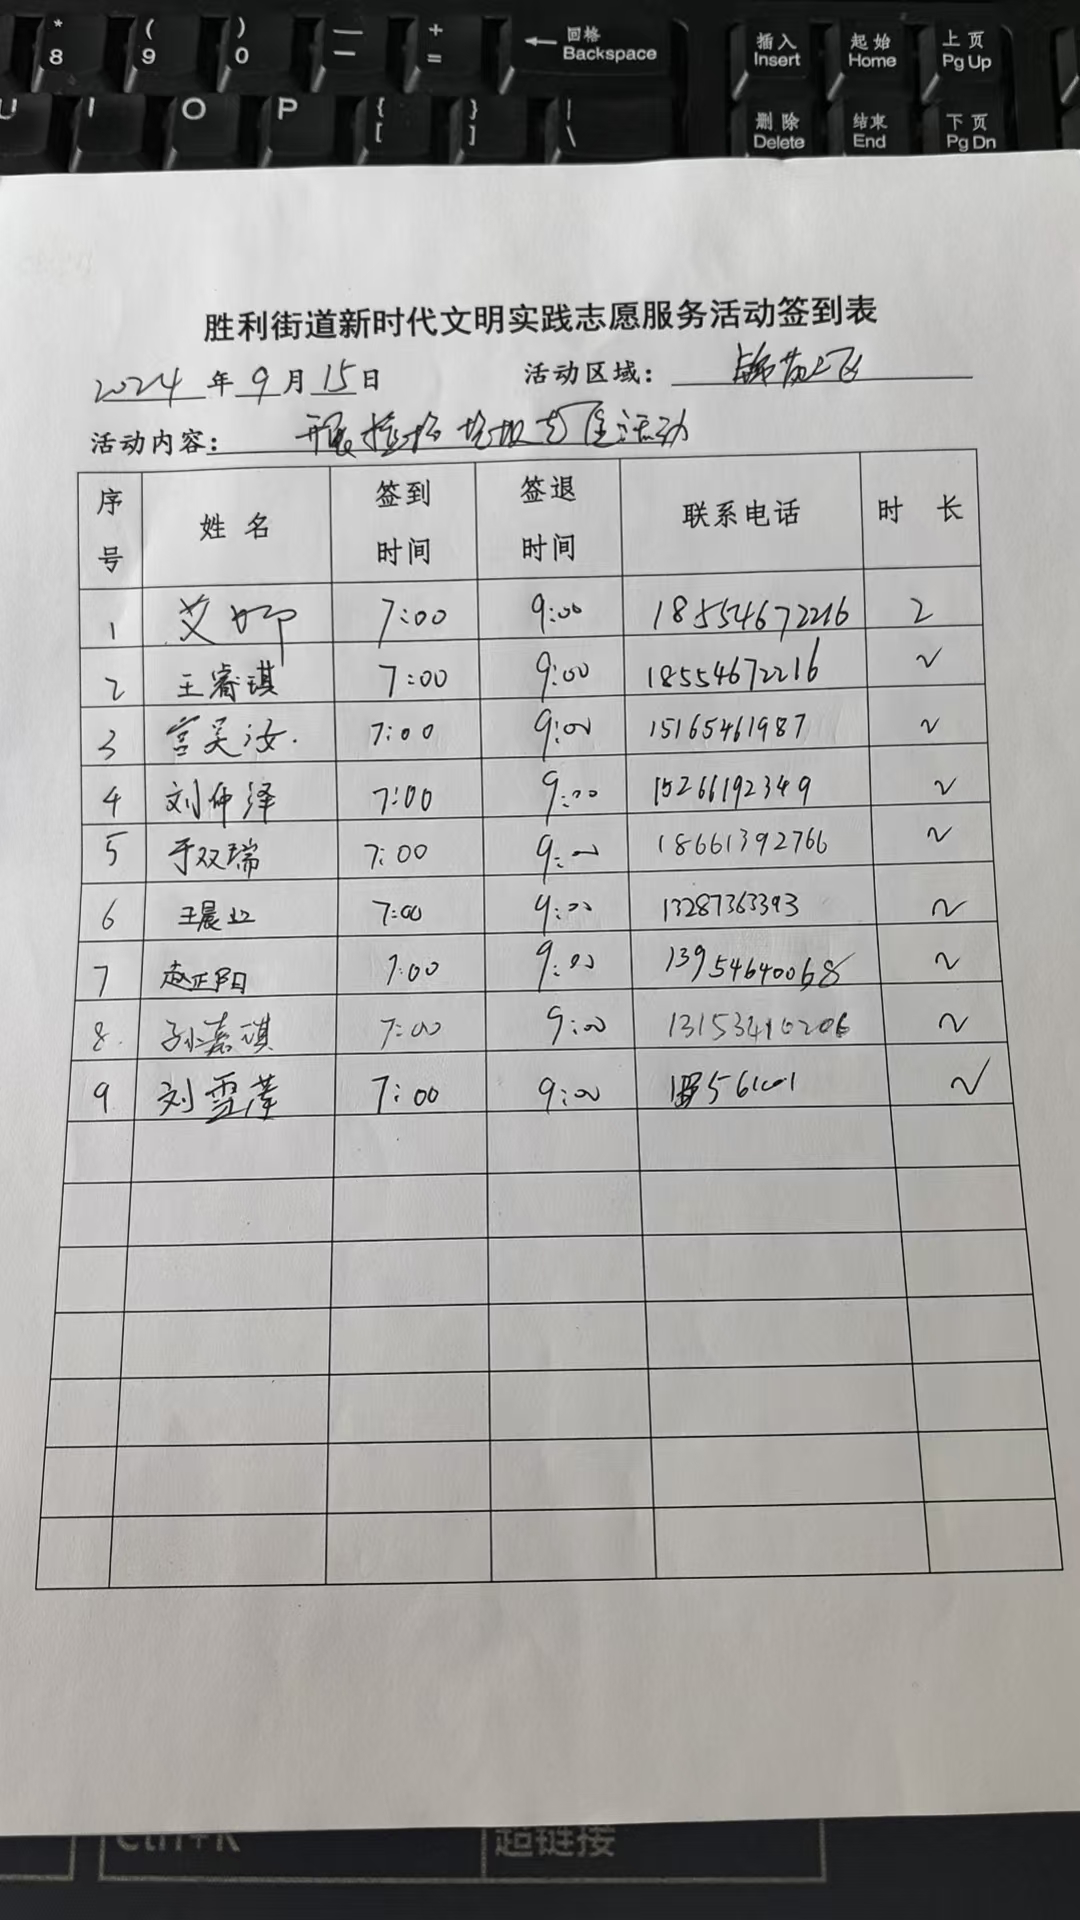 * ( ) — + 回格
8 9 0 — = ← Backspace
插入 起始 上页
Insert Home Pg Up
U I O P { } |
[ ] \
删除 结束 下页
Delete End Pg Dn
胜利街道新时代文明实践志愿服务活动签到表
2024 年 9 月 15 日 活动区域： 锦苑
活动内容： 开展捡拾垃圾志愿活动
序号 姓名 签到时间 签退时间 联系电话 时长
1 艾 7:00 9:00 18554672216 2
2 王睿琪 7:00 9:00 18554672216 2
3 宫吴汝. 7:00 9:00 15165461987 2
4 刘仲泽 7:00 9:00 15266192349 2
5 于双瑞 7:00 9:00 18661392766 2
6 王晨 7:00 9:00 13287363393 2
7 赵正阳 7:00 9:00 13954640068 2
8. 孙嘉琪 7:00 9:00 13153410206 2
9 刘雪莲 7:00 9:00 2
Ctrl+K 超链接